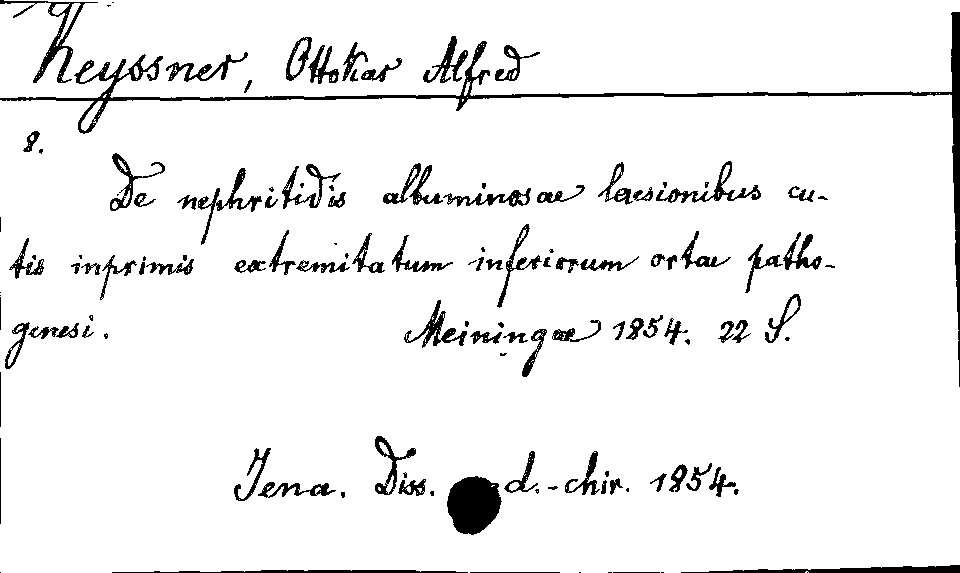 Keyssner, Ottokar Alfred
8.
De nephritidis albuminosae laesionibus cu-
tis inprimis extremitatum inferiorum ortae patho-
genesi. Meiningae 1854. 22 S.
Jena. Diss. d.-chir. 1854.